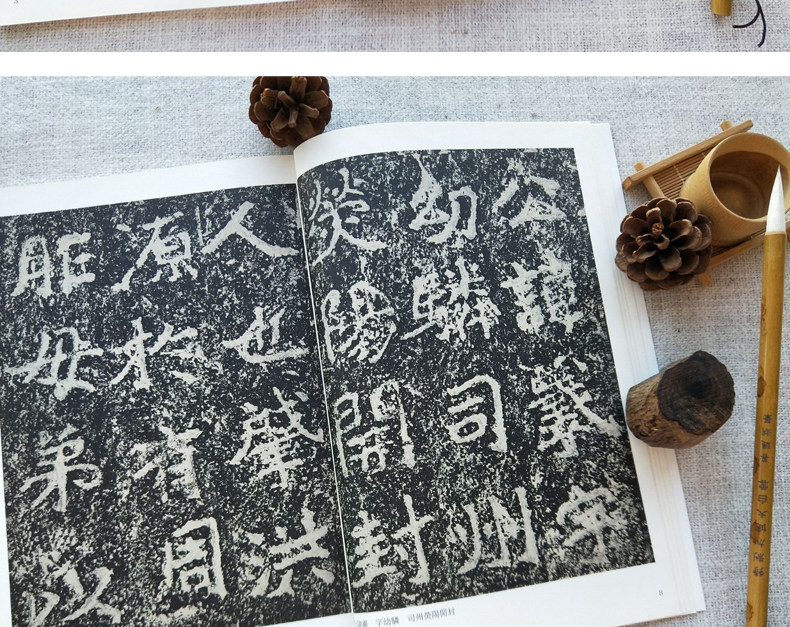 公諱羲字
幼驎司州
熒陽開封
人也肇洪
源於有周
胙母弟以
字幼驎 司州熒陽開封
大白雲